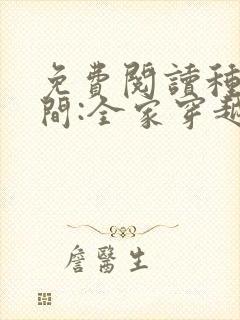 免費閱讀種
間:全家穿越
詹醫生